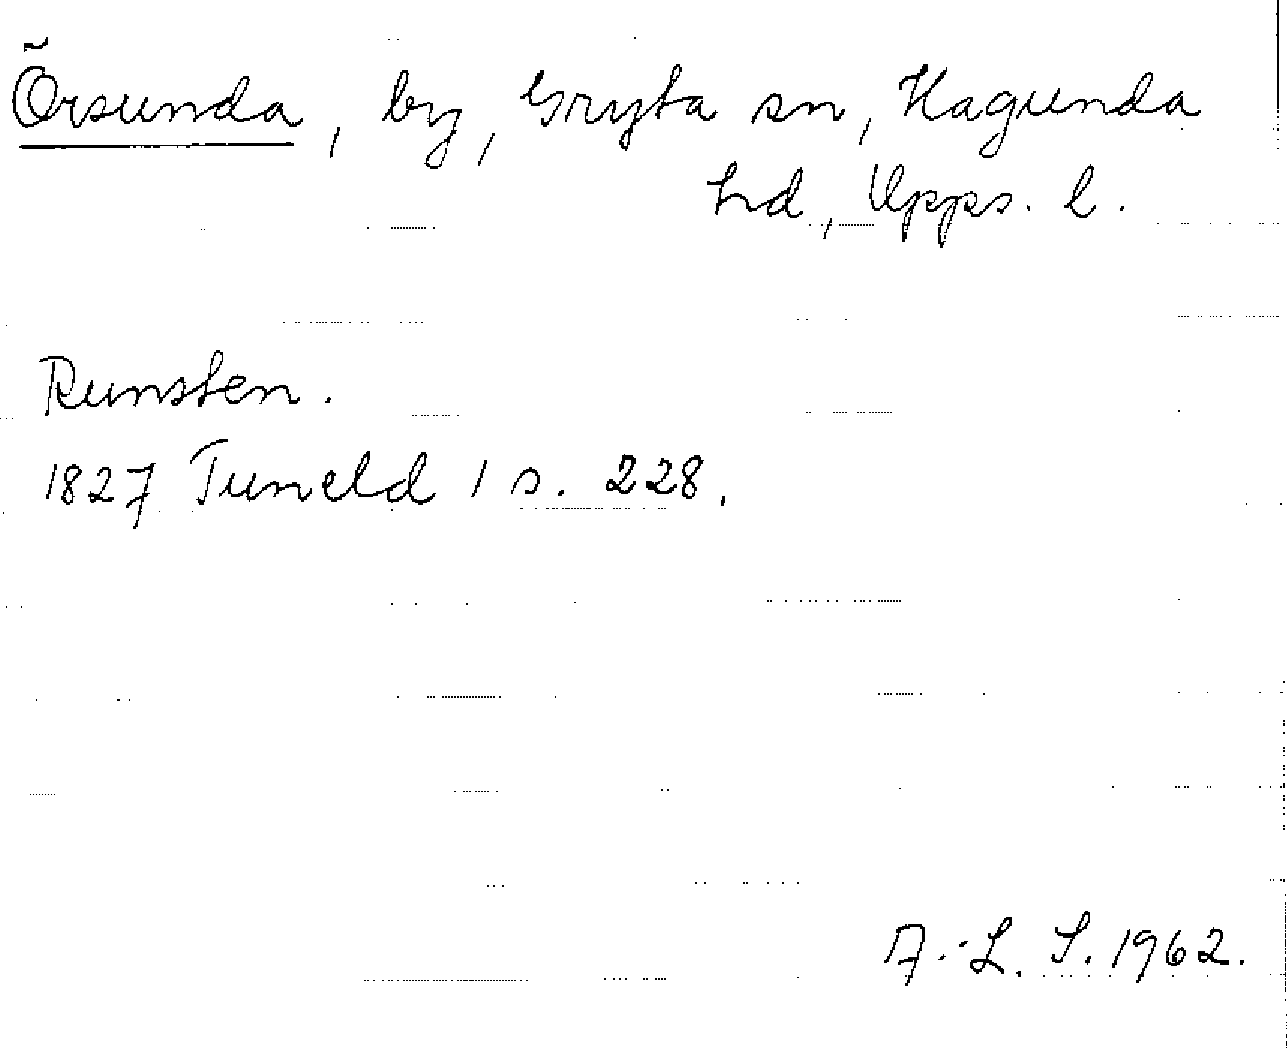 Örsunda, by, Gryta sn, Hagunda
hd, Upps. l.
Runsten.
1827 Tuneld 1 s. 228.
A.-L. S. 1962.